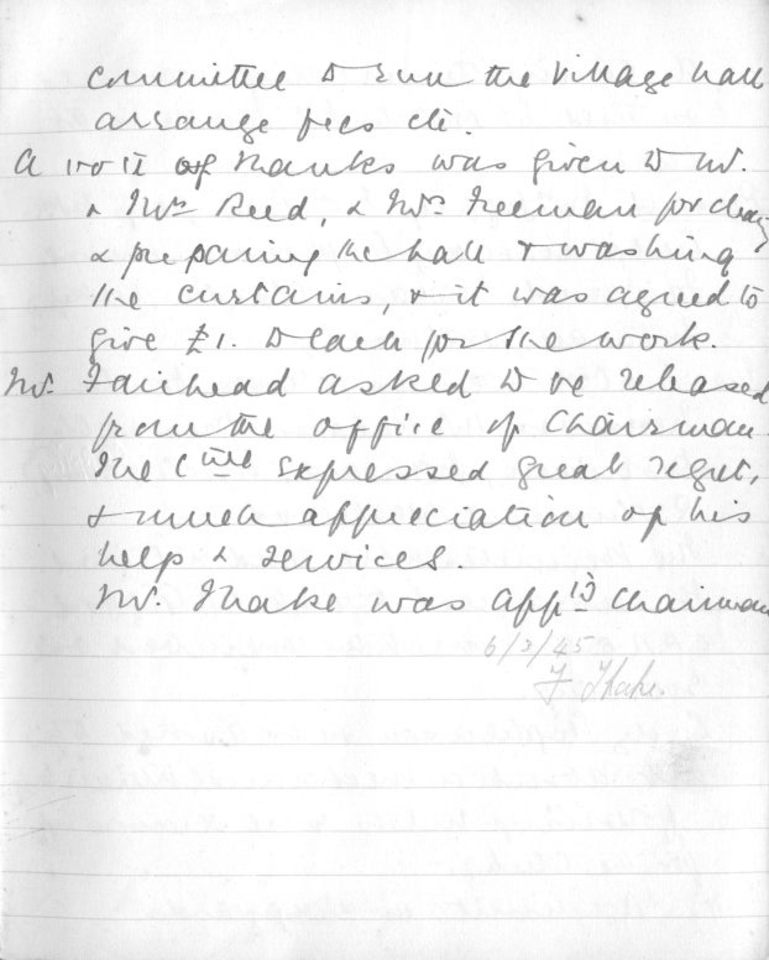 committee to run the village hall
arrange fees etc.
A vote of thanks was given to Mr.
& Mrs Reed, & Mrs. Freeman for cleaning
& preparing the hall & washing
the curtains, & it was agreed to
give £1. to each for the work.
Mr. Fairhead asked to be released
from the office of Chairman.
The Cttee expressed great regret,
& much appreciation of his
help & services.
Mr. Thake was apptd Chairman
6/3/45
F Thake.